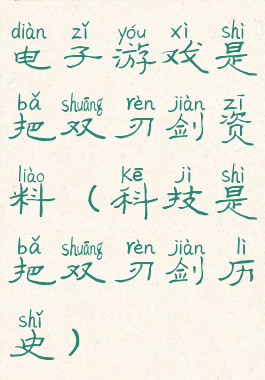 diàn zǐ yóu xì shì
电子游戏是
bǎ shuāng rèn jiàn zī
把双刃剑资
liào kē jì shì
料（科技是
bǎ shuāng rèn jiàn lì
把双刃剑历
shǐ
史）